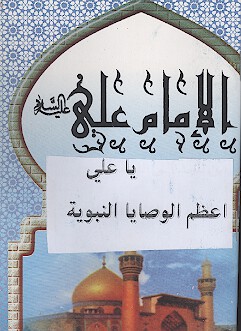 الإمام علي عليه السلام
يا علي
اعظم الوصايا النبوية